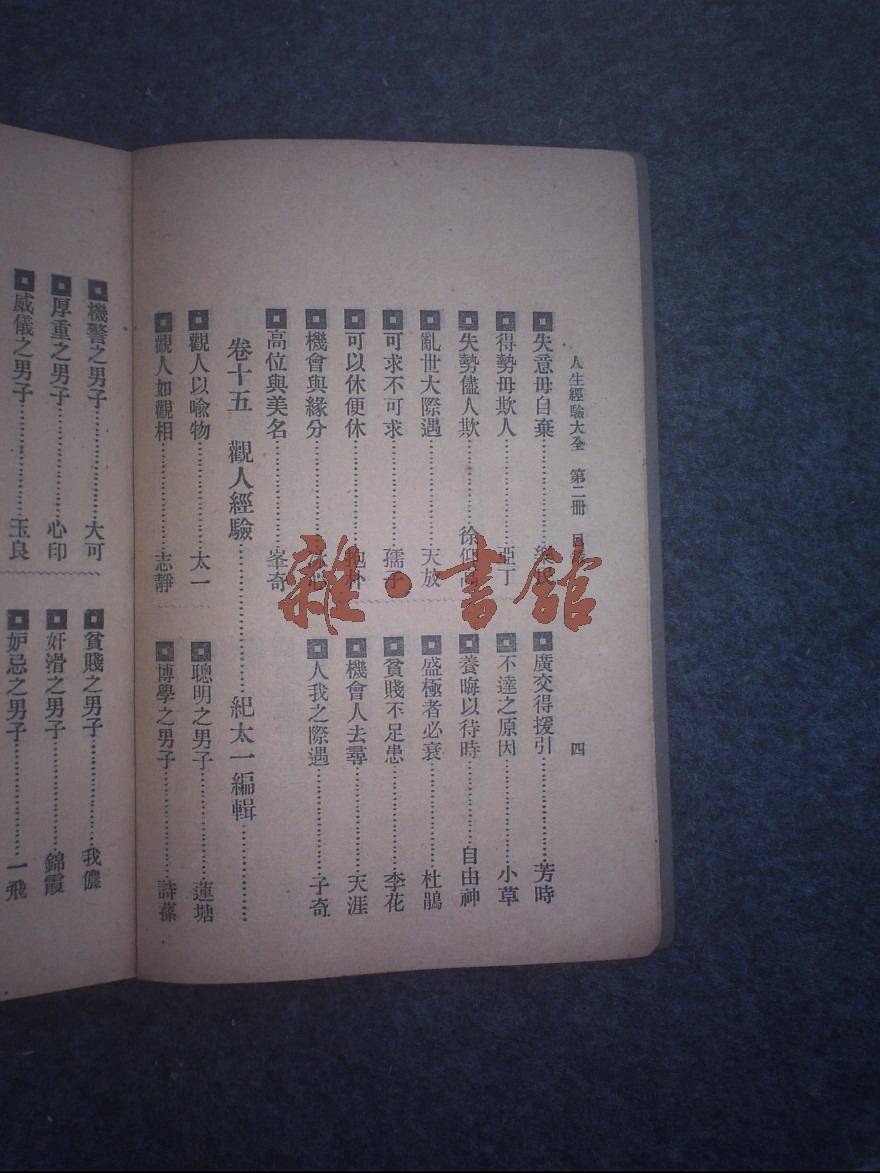 人生經驗大全　第二冊　目　四
失意毋自棄
廣交得援引　芳時
得勢毋欺人　亞丁
不達之原因　小草
失勢儘人欺　徐
養晦以待時　自由神
亂世大際遇　天放
盛極者必衰　杜鵑
可求不可求　孺子
貧賤不足患　李花
可以休便休　抱朴
機會人去尋　天涯
機會與緣分
人我之際遇　子奇
高位與美名　峯奇
卷十五　觀人經驗　紀太一編輯
觀人以喻物　太一
聰明之男子　蓮塘
觀人如觀相　志靜
博學之男子　詩蓀
機警之男子　大可
貧賤之男子　我儂
厚重之男子　心印
奸滑之男子　錦霞
威儀之男子　玉良
妒忌之男子　一飛
雜·書館